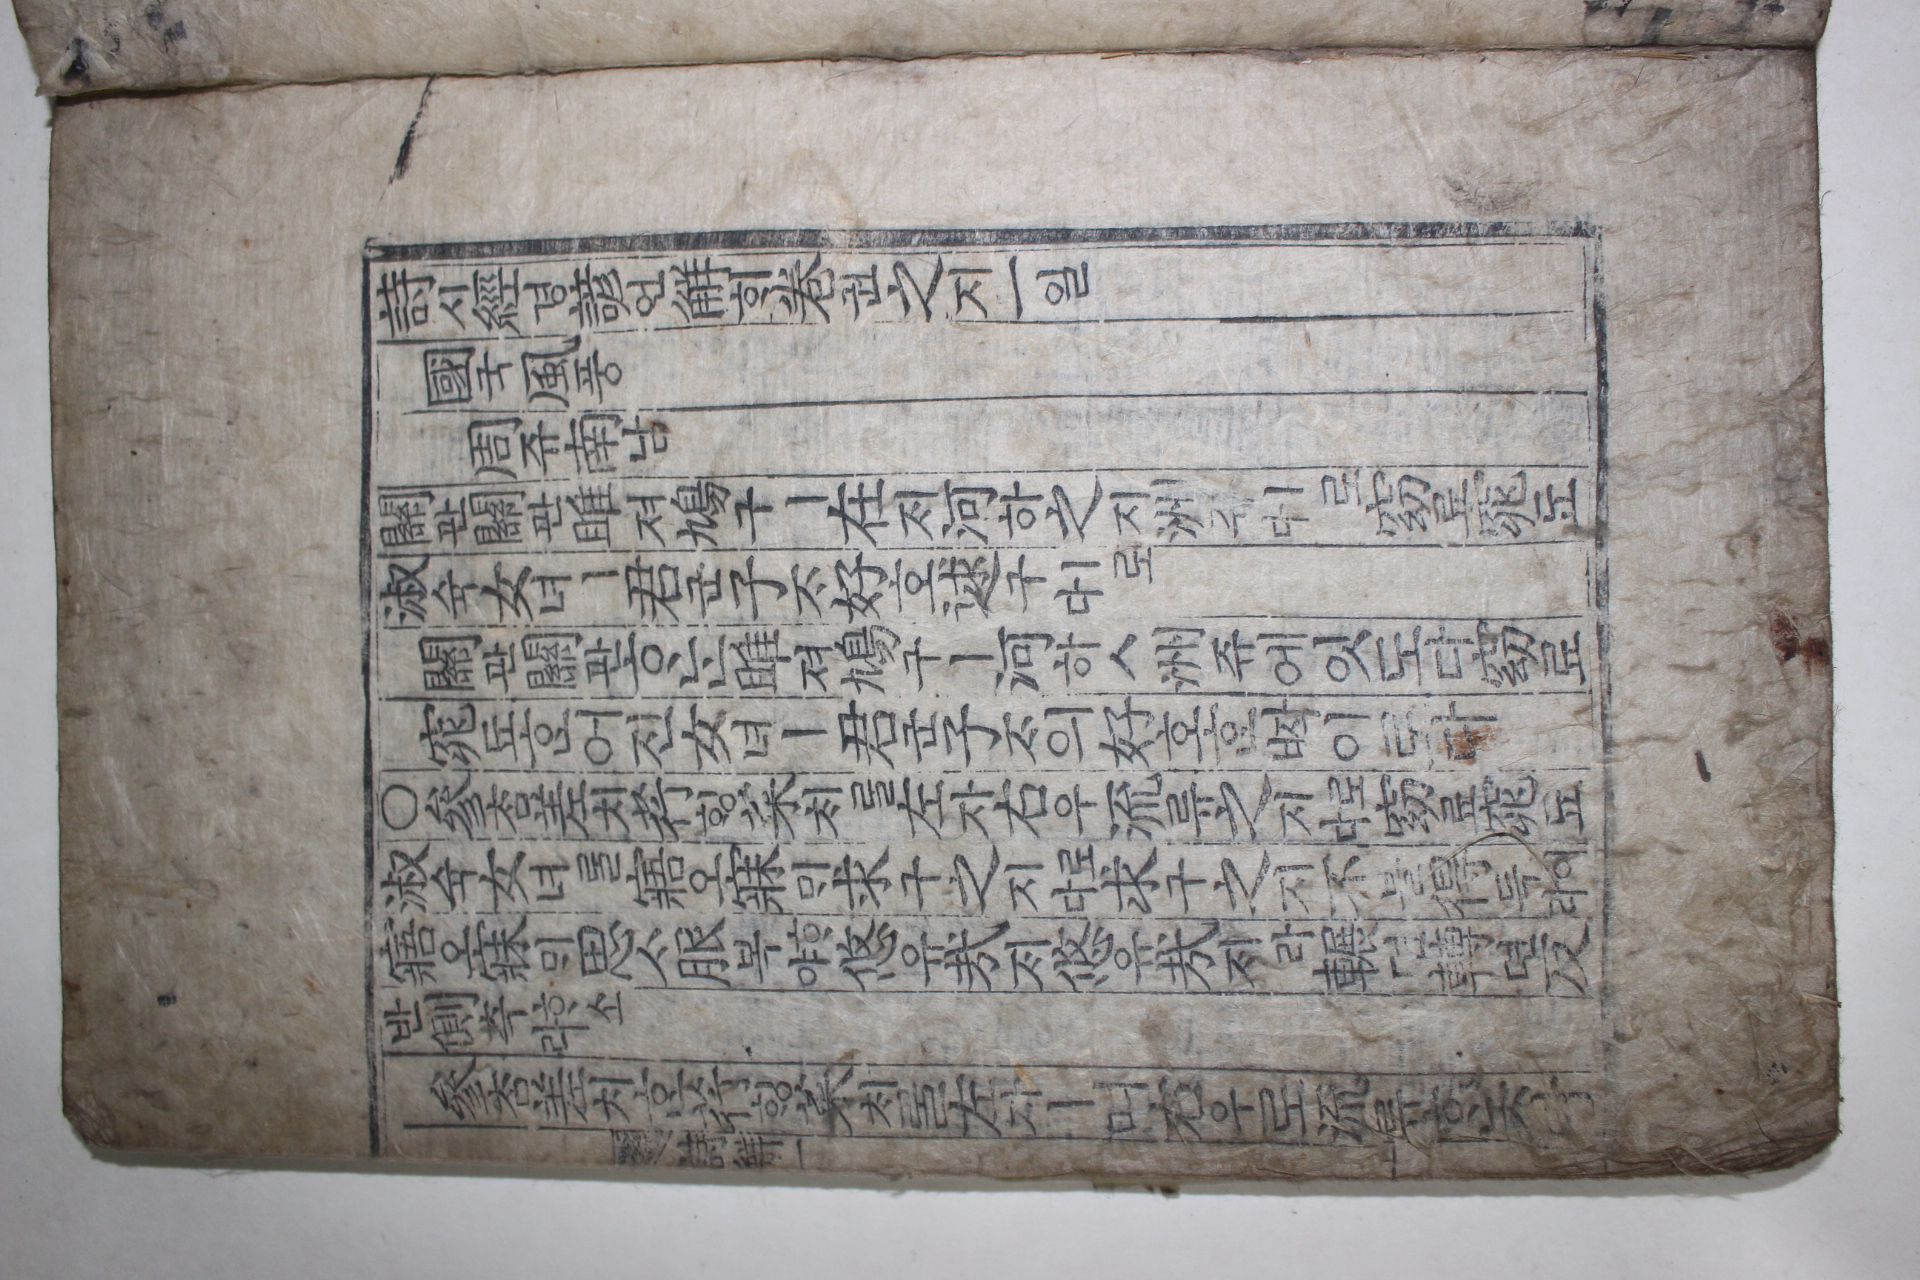 詩시經경諺언解ᄒᆡ卷권之지一일
國국風풍
周쥬南남
關관關관雎져鳩구ㅣ在ᄌᆡ河하之지洲쥬ㅣ로다窈요窕됴
淑슉女녀ㅣ君군子ᄌᆞ好호逑구ㅣ로다
關관關관ᄒᆞᄂᆞᆫ雎져鳩구ㅣ河하ㅅ洲쥬에잇도다窈요
窕됴ᄒᆞᆫ어진女녀ㅣ君군子ᄌᆞ의好호ᄒᆞᆫᄧᅡᆨ이로다
○參ᄎᆞᆷ差치荇ᄒᆡᆼ菜ᄎᆡ를左자右우流류之지로다窈요窕됴
淑슉女녀를寤오寐ᄆᆡ求구之지로다求구之지不블得득이라
寤오寐ᄆᆡ思ᄉᆞ服복ᄒᆞ야悠유哉ᄌᆡ悠유哉ᄌᆡ라輾뎐轉뎐反
반側측ᄒᆞ소라
參ᄎᆞᆷ差치ᄒᆞᆫ荇ᄒᆡᆼ菜ᄎᆡ를左자ㅣ며右우로流류ᄒᆞ놋
詩解一